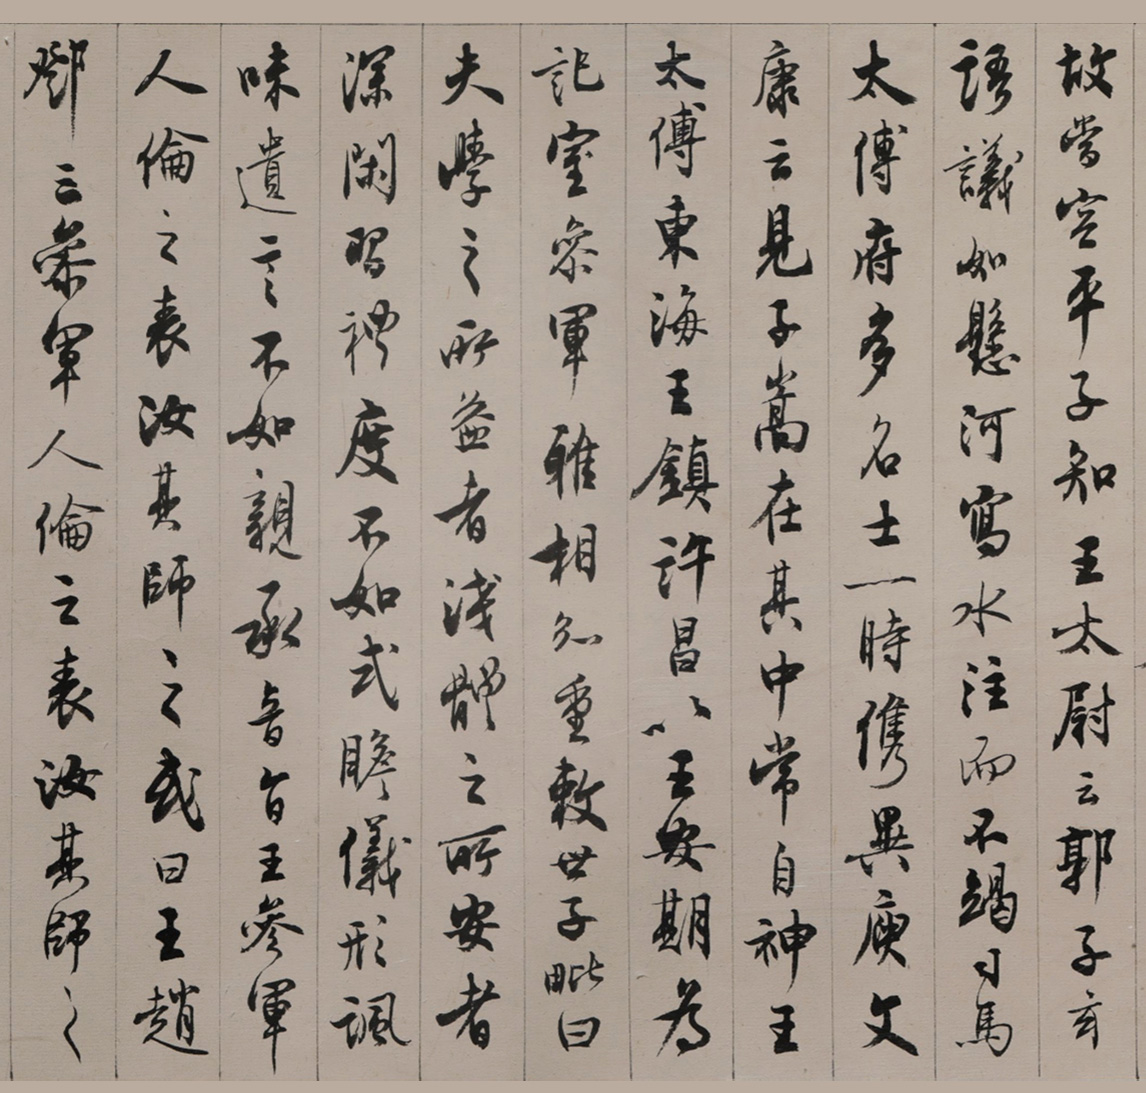 故嘗空平子知王太尉云郭子玄
語議如懸河寫水注而不竭司馬
太傅府多名士一時儁異庾文
康云見子嵩在其中常自神王
太傅東海王鎮許昌以王安期為
記室參軍雅相知重敕世子毗曰
夫學之所益者淺體之所安者
深閑習禮度不如式瞻儀形諷
味遺言不如親承音旨王參軍
人倫之表汝其師之或曰王趙
鄧三參軍人倫之表汝其師之